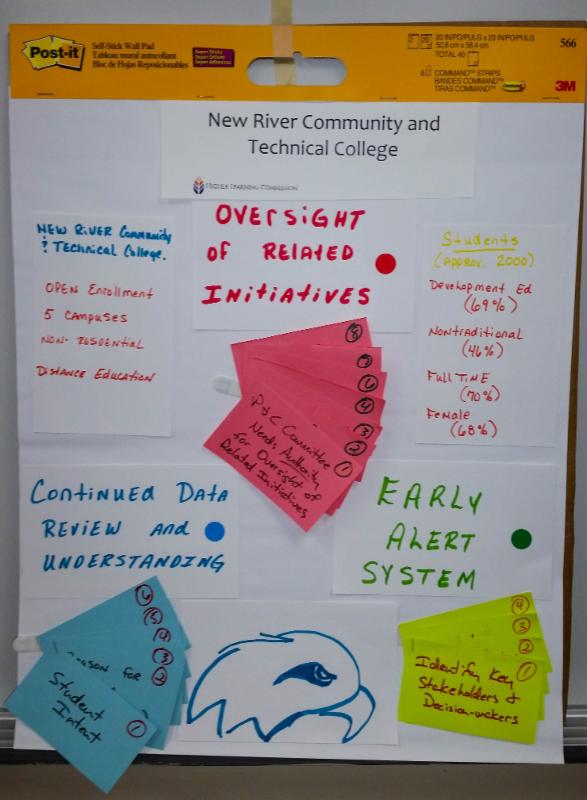 Post-it
Self-Stick Wall Pad
Tableau mural autocollant
Bloc de Hojas Reposicionables
Super Sticky
20 IN/PO/PULG x 23 IN/PO/PULG
50,8 cm x 58.4 cm
TOTAL 40
COMMAND™ STRIPS
BANDES COMMAND™
TIRAS COMMAND™
566
3M
New River Community and
Technical College
HIGHER LEARNING COMMISSION
NEW RIVER Community
& Technical College.
OPEN Enrollment
5 CAMPUSES
NON-RESIDENTIAL
DISTANCE EDUCATION
OVERSIGHT
OF RELATED
INITIATIVES
Students
(APPROX. 2000)
Development Ed
(69%)
Nontraditional
(46%)
Full TIME
(70%)
Female
(68%)
6
4
3
2
1
P&C Committee
Needs Authority
for Oversight of
Related Initiatives
CONTINUED DATA
REVIEW AND
UNDERSTANDING
EARLY
ALERT
SYSTEM
6
5
4
3
FOR 2
Student
Intent
1
4
3
2
1
Identify Key
Stakeholders &
Decision-makers